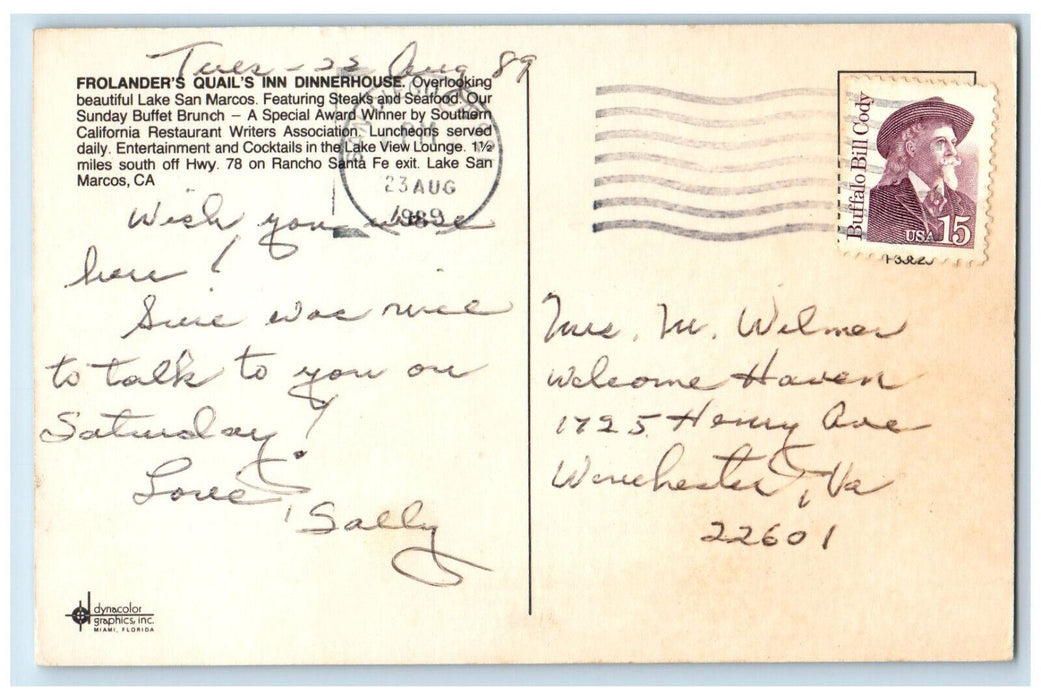 Tues - 22 Aug 89
FROLANDER'S QUAIL'S INN DINNERHOUSE. Overlooking
beautiful Lake San Marcos. Featuring Steaks and Seafood. Our
Sunday Buffet Brunch – A Special Award Winner by Southern
California Restaurant Writers Association. Luncheons served
daily. Entertainment and Cocktails in the Lake View Lounge. 1½
miles south off Hwy. 78 on Rancho Santa Fe exit. Lake San
Marcos, CA
PM
23 AUG
1989
Wish you were
here!
Sure was nice
to talk to you on
Saturday!
Love,
Sally
dynacolor
graphics, inc.
MIAMI, FLORIDA
Buffalo Bill Cody
USA 15
Mrs. M. Wilmer
Welcome Haven
1725 Henry Ave
Winchester, Va
22601